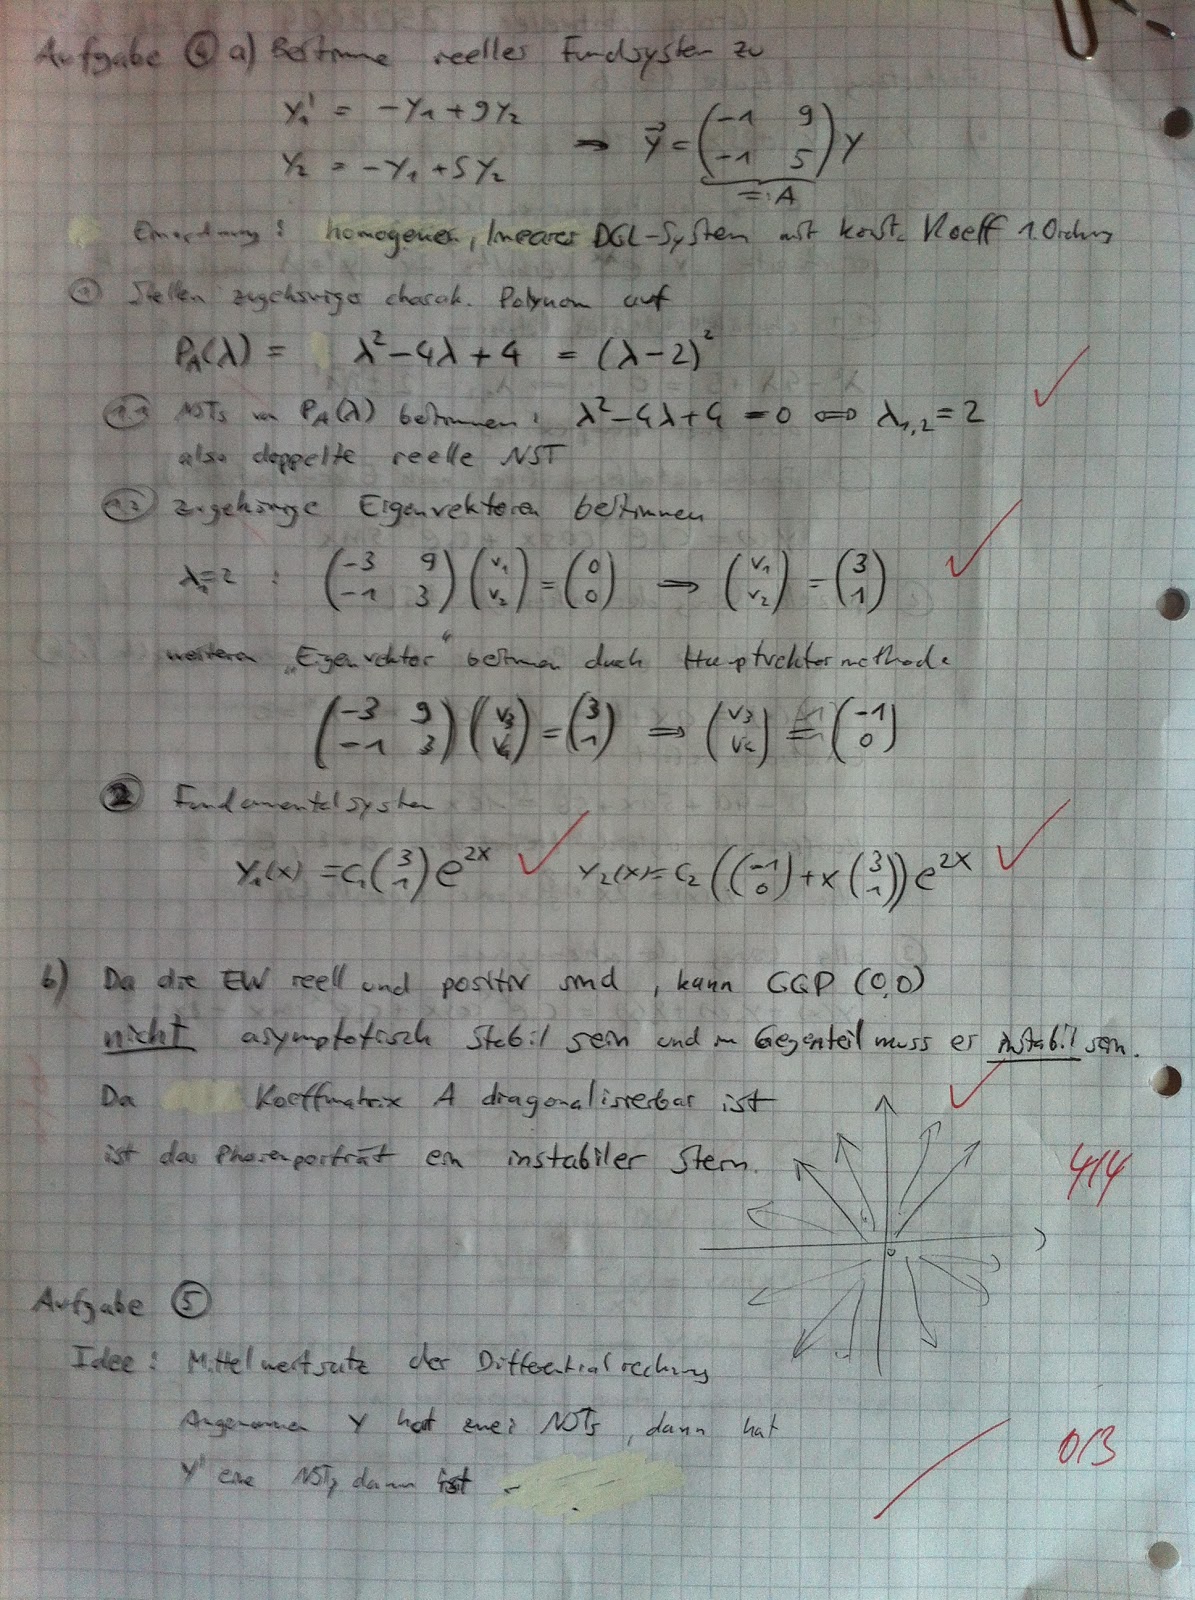 Aufgabe ④ a) Bestimme reelles Fundsystem zu
y₁' = -y₁ + 9y₂
y₂ = -y₁ + 5y₂
→ y⃗ = (-1 9; -1 5) y
=: A
Einordnung: homogenes, lineares DGL-System mit konst. Koeff 1. Ordnung
① Stellen zugehöriges charak. Polynom auf
P_A(λ) = λ² - 4λ + 4 = (λ - 2)²
1.1 NSTs von P_A(λ) bestimmen: λ² - 4λ + 4 = 0 ⇔ λ₁,₂ = 2
also doppelte reelle NST
1.2 zugehörige Eigenvektoren bestimmen
λ₁ = 2 : (-3 9; -1 3) (v₁; v₂) = (0; 0) ⇒ (v₁; v₂) = (3; 1)
weiteren „Eigenvektor“ bestimmen duch Hauptvektormethode
(-3 9; -1 3) (v₃; v₄) = (3; 1) ⇒ (v₃; v₄) = (-1; 0)
② Fundamentalsystem
y₁(x) = c₁ (3; 1) e^{2x} y₂(x) = c₂ ((-1; 0) + x (3; 1)) e^{2x}
b) Da die EW reell und positiv sind, kann GGP (0,0)
nicht asymptotisch stabil sein und im Gegenteil muss er instabil sein.
Da Koeffmatrix A diagonalisierbar ist
ist das Phasenporträt ein instabiler Stern.
4/4
Aufgabe ⑤
Idee: Mittelwertsatz der Differentialrechnung
Angenommen y hat zwei NSTs, dann hat
y' eine NST, dann ist
0/3